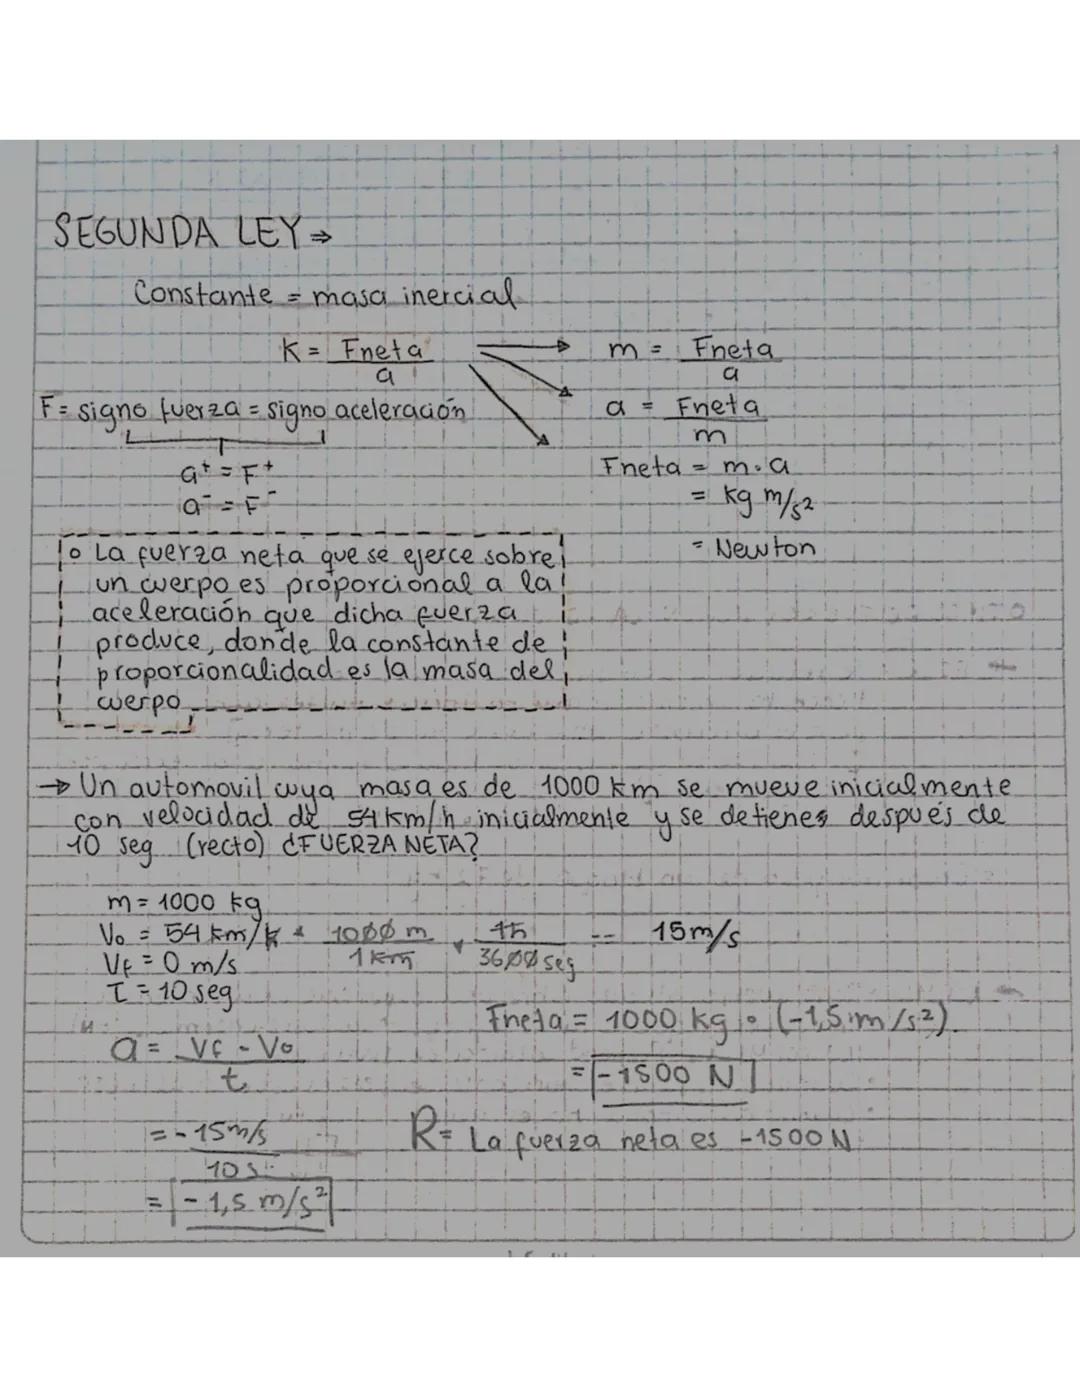 SEGUNDA LEY ⇒
Constante = masa inercial
K = Fneta / a → m = Fneta / a
F = signo fuerza = signo aceleración
a = Fneta / m
a⁺ = F⁺
a⁻ = F⁻
Fneta = m · a
= kg m/s²
= Newton
o La fuerza neta que se ejerce sobre
un cuerpo es proporcional a la
aceleración que dicha fuerza
produce, donde la constante de
proporcionalidad es la masa del
cuerpo
→ Un automovil cuya masa es de 1000 km se mueve inicialmente
con velocidad de 54 km/h inicialmente y se detienes después de
10 seg (recto) ¿FUERZA NETA?
m = 1000 kg
Vo = 54 km/h * 1000 m / 1 km * 1h / 3600 seg -- 15 m/s
Vf = 0 m/s
T = 10 seg
Fneta = 1000 kg · (-1,5 m/s²)
a = Vf - Vo / t
= -1500 N
= -15 m/s / 10 s
R = La fuerza neta es -1500 N
= -1,5 m/s²